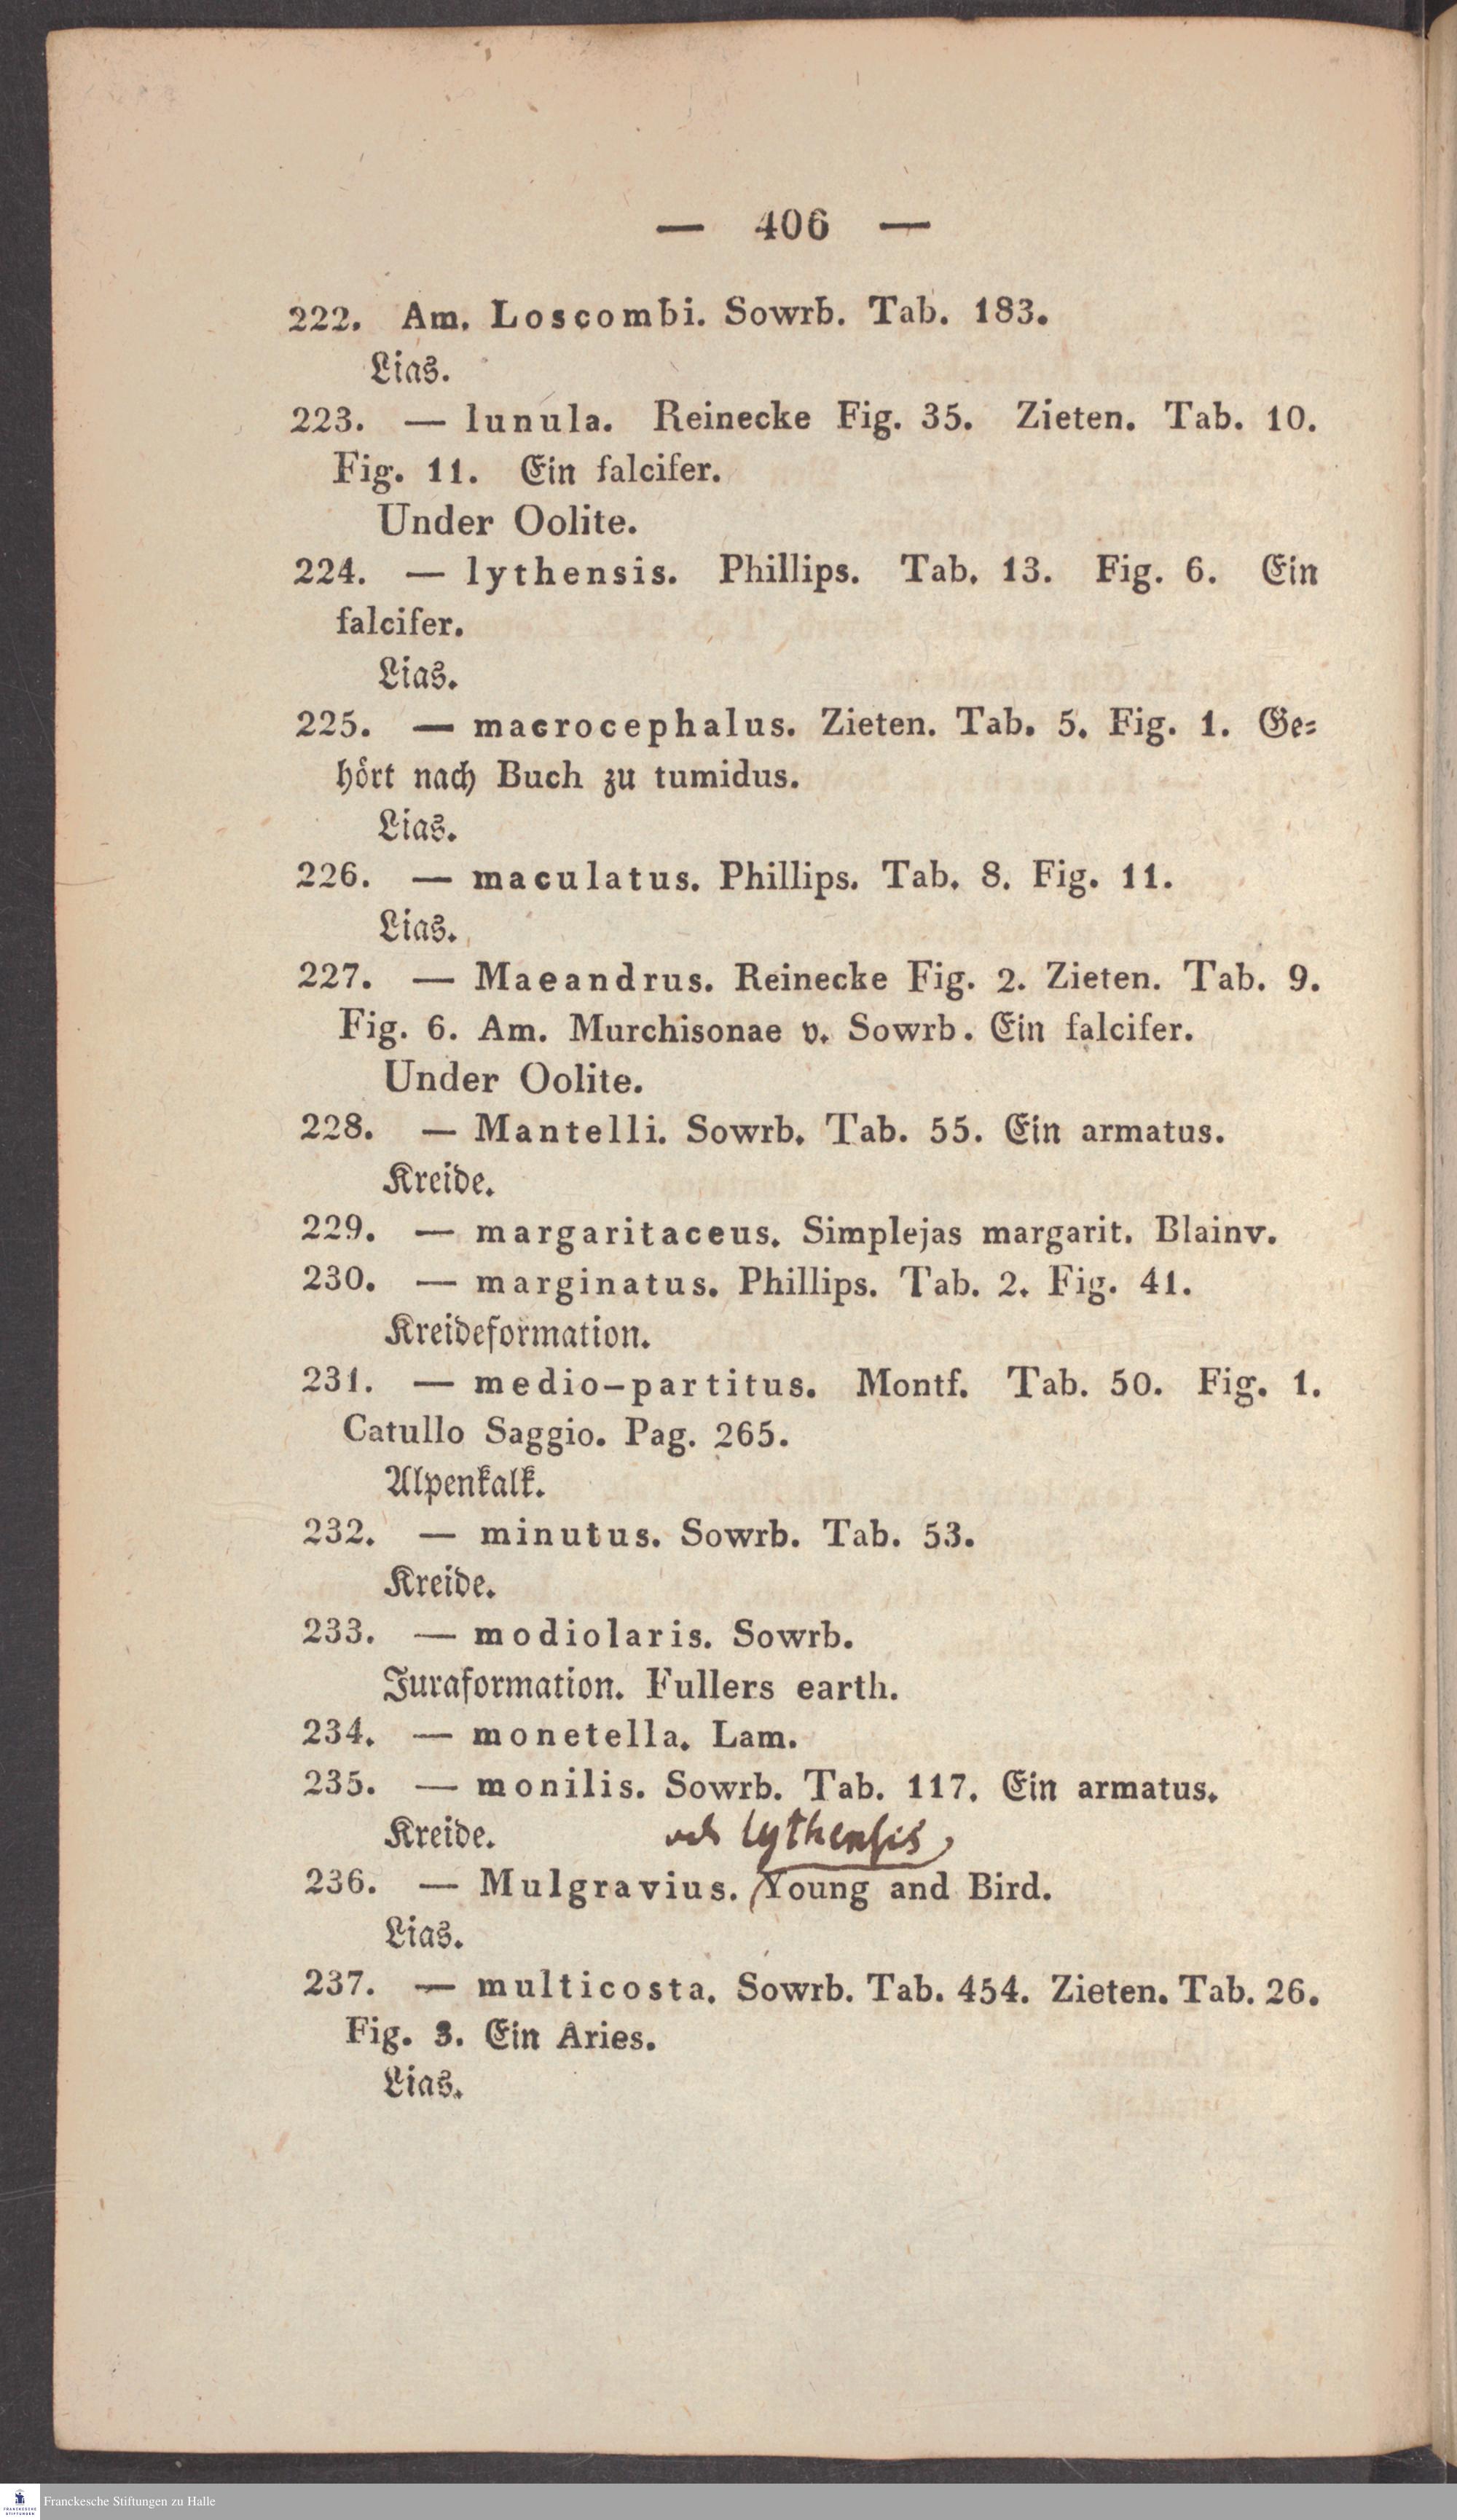 — 406 —
222. Am. Loscombi. Sowrb. Tab. 183.
Lias.
223. — lunula. Reinecke Fig. 35. Zieten. Tab. 10.
Fig. 11. Ein falcifer.
Under Oolite.
224. — lythensis. Phillips. Tab. 13. Fig. 6. Ein
falcifer.
Lias.
225. — macrocephalus. Zieten. Tab. 5. Fig. 1. Ge-
hört nach Buch zu tumidus.
Lias.
226. — maculatus. Phillips. Tab. 8. Fig. 11.
Lias.
227. — Maeandrus. Reinecke Fig. 2. Zieten. Tab. 9.
Fig. 6. Am. Murchisonae v. Sowrb. Ein falcifer.
Under Oolite.
228. — Mantelli. Sowrb. Tab. 55. Ein armatus.
Kreide.
229. — margaritaceus. Simplejas margarit. Blainv.
230. — marginatus. Phillips. Tab. 2. Fig. 41.
Kreideformation.
231. — medio-partitus. Montf. Tab. 50. Fig. 1.
Catullo Saggio. Pag. 265.
Alpenkalk.
232. — minutus. Sowrb. Tab. 53.
Kreide.
233. — modiolaris. Sowrb.
Juraformation. Fullers earth.
234. — monetella. Lam.
235. — monilis. Sowrb. Tab. 117. Ein armatus.
Kreide. lythensis
236. — Mulgravius. Young and Bird.
Lias.
237. — multicosta. Sowrb. Tab. 454. Zieten. Tab. 26.
Fig. 3. Ein Aries.
Lias.
Franckesche Stiftungen zu Halle